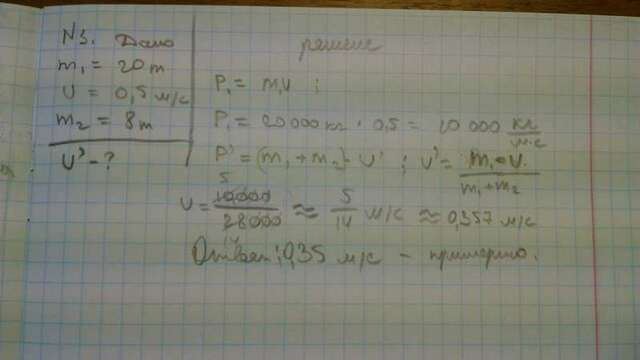 N3. Дано
m₁ = 20 т
υ = 0,5 м/с
m₂ = 8 т
υ' - ?
решение
P₁ = m₁υ ;
P₁ = 20 000 кг · 0,5 = 10 000 кг/м·с
P' = (m₁ + m₂) · υ' ; υ' = m₁ · υ / m₁ + m₂
υ = 10000/28000 ≈ 5/14 м/с ≈ 0,357 м/с
Ответ: 0,35 м/с – примерно.